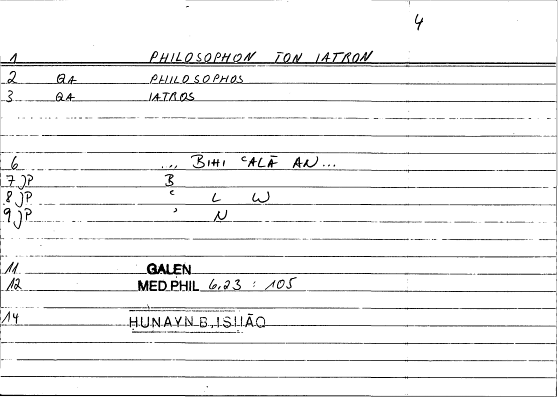 4
1 PHILOSOPHON TON IATRON
2 QA PHILOSOPHOS
3 QA IATROS
6 ... BIHI ʿALĀ AN...
7 JP B
8 JP ʿ L W
9 JP ʾ N
11 GALEN
12 MED.PHIL 6,23 : 105
14 HUNAYN B. ISḤĀQ